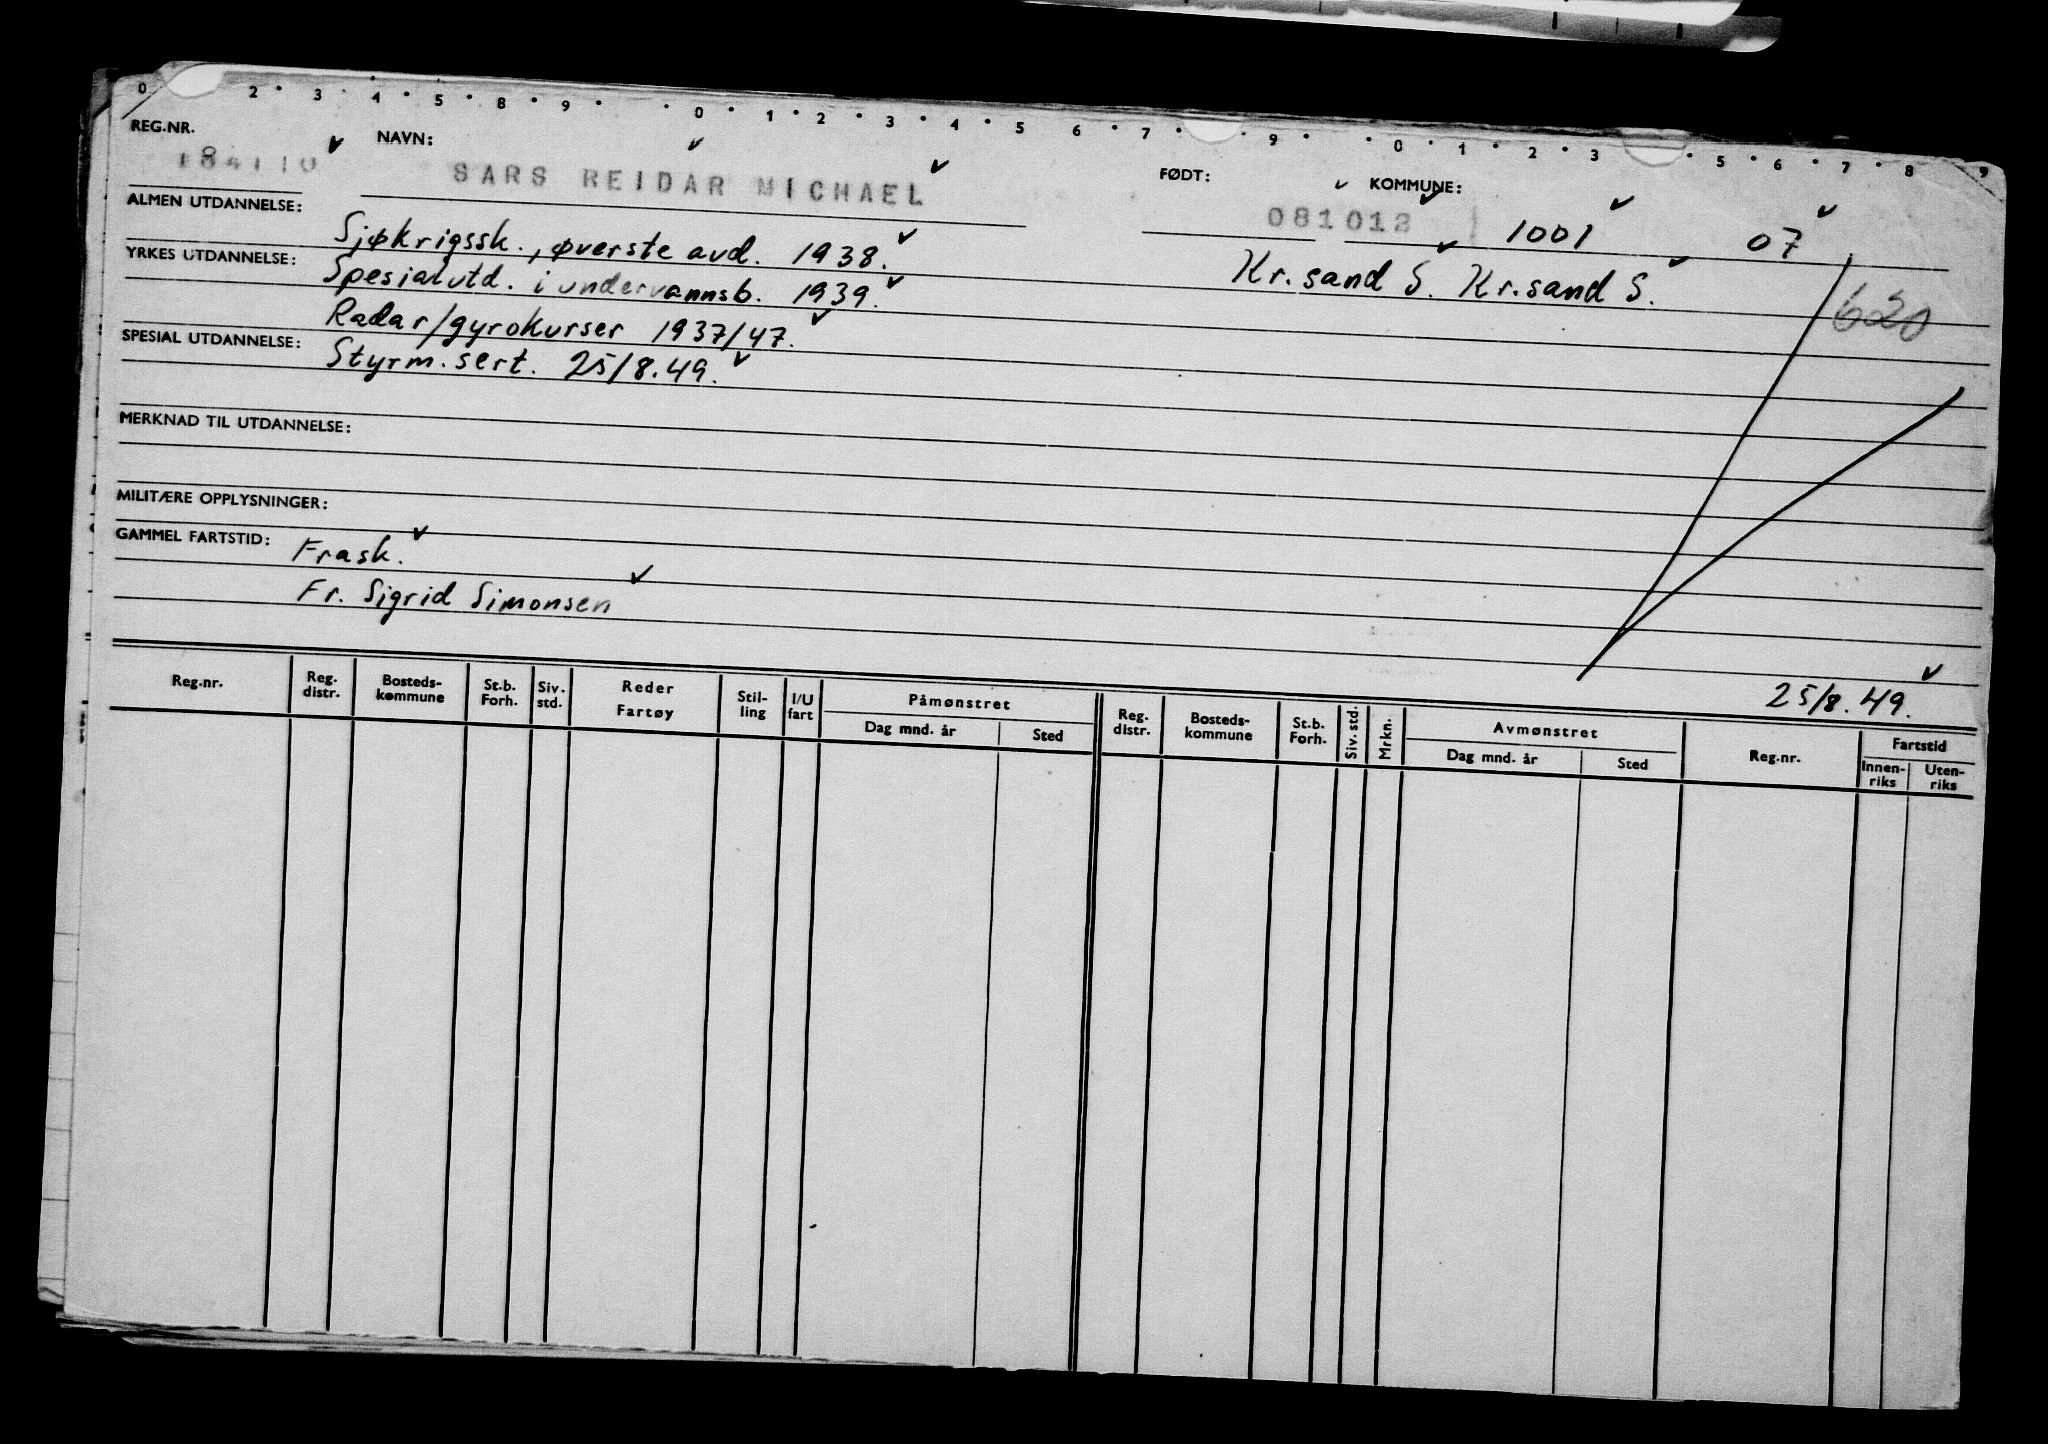 0 2 3 4 5 8 9 0 1 2 3 4 5 6 7 9 0 1 2 3 5 6 7 8 9
REG.NR. NAVN: FØDT: KOMMUNE:
184110 SARS REIDAR MICHAEL 081012 1001 07
ALMEN UTDANNELSE: Sjøkrigssk., øverste avd. 1938. Kr.sand S. Kr.sand S.
YRKES UTDANNELSE: Spesialutd. i undervannsb. 1939. 620
Radar/gyrokurser 1937/47.
SPESIAL UTDANNELSE: Styrm.sert. 25/8.49.
MERKNAD TIL UTDANNELSE:
MILITÆRE OPPLYSNINGER:
GAMMEL FARTSTID: Frask.
Fr. Sigrid Simonsen
25/8.49.
Reg.nr. Reg. distr. Bosteds-kommune St.b. Forh. Siv. std. Reder Fartøy Stil-ling I/U fart Påmønstret Dag mnd. år Sted Reg. distr. Bosteds-kommune St.b. Forh. Siv. std. Mrkn. Avmønstret Dag mnd. år Sted Reg.nr. Fartstid Innen-riks Uten-riks